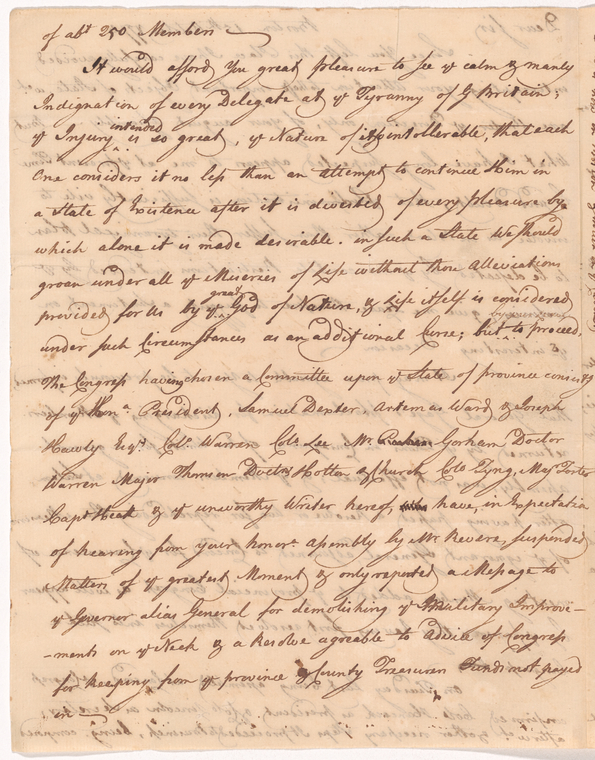 of abt 250 Members
It would afford You great pleasure to see ye calm & manly
Indignation of every Delegate at ye Tyranny of G Britain;
ye Injury intended is so great, ye Nature of it so intollerable, that each
One considers it no less than an attempt to continue Him in
a State of Existence after it is divested of every pleasure by
which alone it is made desirable. in such a State We should
groan under all ye Miseries of Life without those Alleviations
provided for Us by ye great God of Nature, & Life itself is considered
under such Circumstances as an additional Curse; but to proceed,
The Congress having chosen a Committee upon ye State of province consistg
of ye Hona. President, Samuel Dexter, Artemas Ward & Joseph
Hawly Esqrs Colo. Warren Colo Lee Mr. Gorham Doctor
Warren Major Thomson Doctrs Holten & Church, Colo Tyng, Majr Foster
Capt Heath & ye unworthy Writer hereof, have, in Expectation
of hearing from your honors Assembly by Mr. Revere, suspended
Matters of ye greatest Moment & only reported a Message to
ye Governor alias General for demolishing ye Military Improve-
-ments on ye Neck & a Resolve agreable to Advice of Congress
for keeping from ye province & County Treasurers Funds not payed
in